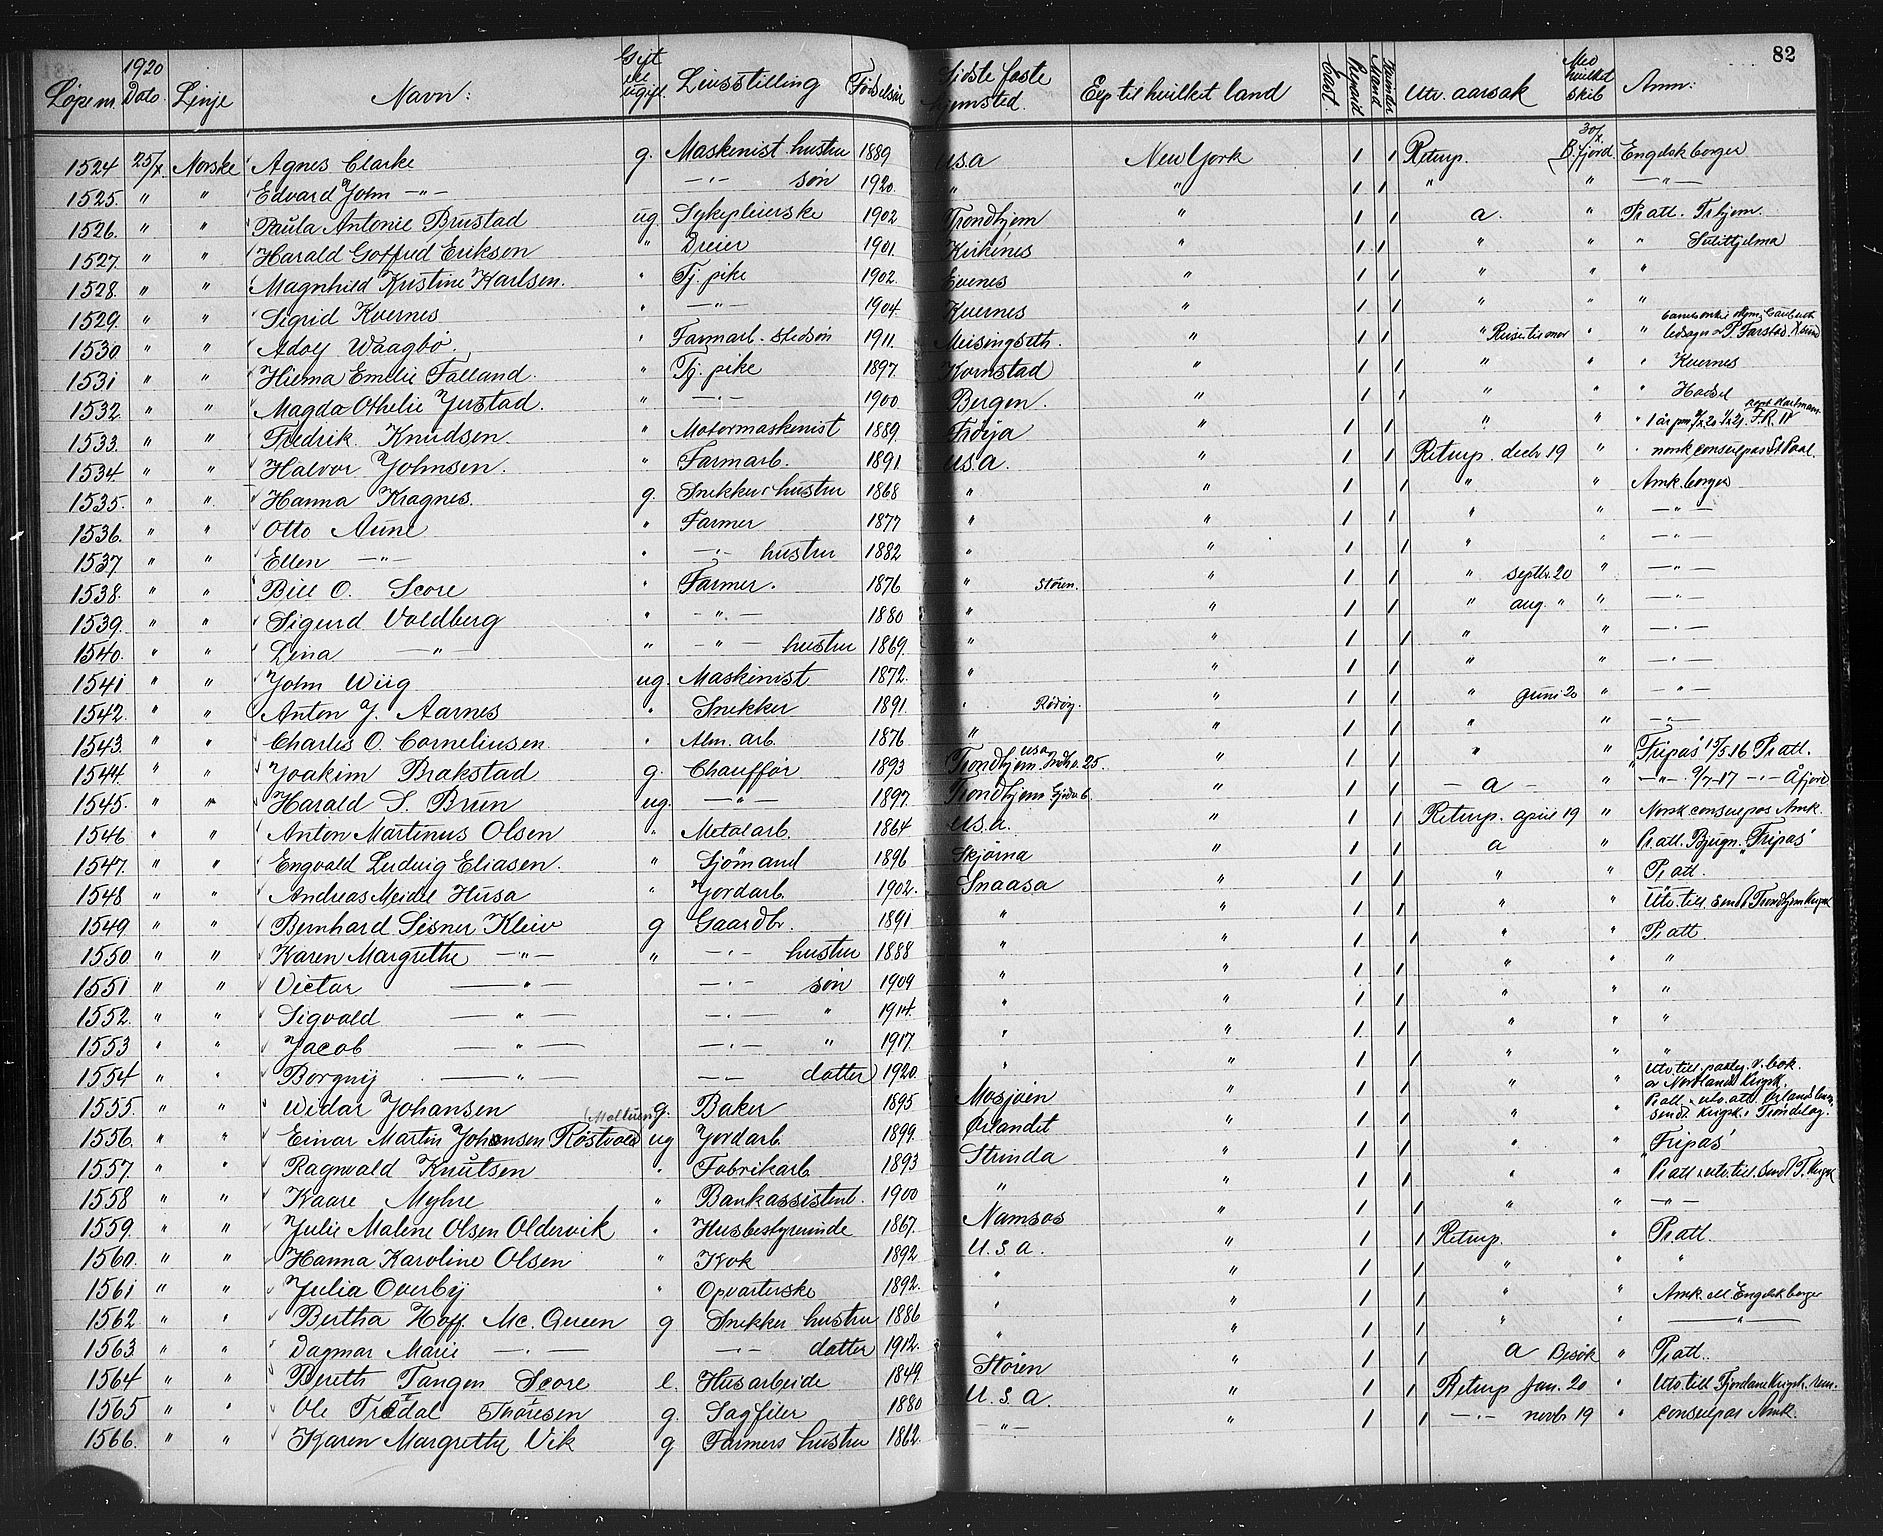 82
1920 Gift Med
Løpe nr. Dato Linje Navn: ugift Livsstilling Fødselsår Sidste faste hjemsted. Exp til hvilket land Utv. aarsak hvilket skib Anm:
1524 25/X Norske Agnes Clarke g. Maskinist hustru 1889 Usa New York 1 1 Returp. 30/X B.fjord. Engelsk borger
1525. " " Edvard John —"— —"— søn 1920. " " 1 1 " " —"—
1526. " " Paula Antonie Brustad ug. Sykepleierske 1902 Trondhjem " 1 1 a. " Pr att. Trhjem.
1527. " " Harald Gotfred Erikson " Dreier 1901. Kirkenes " 1 1 " " " Sulitjelma
1528. " " Magnhild Kristine Karlsen. " Tj. pike 1902. Evenes " 1 1 " " "
1529. " " Sigrid Kvernes " —"— 1904. Kvernes " 1 1 " " "
1530 " " Adolf Waagbø. " Farmarb. stedsøn 1911. Meisingseth. " 1 1 " Reise til mor " " ledsager P. Farstad. Ksund
1531 " " Hilma Emelie Falland. " Tj. pike 1897. Kornstad " 1 1 " " " Kvernes
1532. " " Magda Othelie Jerstad. " —"— 1900. Bergen. " 1 1 " " " Hadsel
1533. " " Fredrik Knudsen. " Motormaskinist 1889. Frøija " 1 1 " " " 1 år
1534. " " Halvor Johnsen. " Farmarb. 1891 Usa. " 1 1 Returp. decbr 19 " norsk consulpas St Paal.
1535. " " Hanna Kragnes. g. Snekker hustru 1868 " " 1 1 " " Amk. borger
1536. " " Otto Aune " Farmer 1877 " " 1 1 " " —"—
1537 " " Ellen —"— " —"— hustru 1882 " " 1 1 " " —"—
1538. " " Bill O. Score " Farmer. 1876 " Støren. " 1 1 " septbr. 20 " —"—
1539. " " Sigurd Voldberg " —"— 1880 " " 1 1 " aug. " " —"—
1540. " " Lina —"— " —"— hustru 1869. " " 1 1 " " —"—
1541 " " John Wiig ug. Maskinist 1872. " " 1 1 " " —"—
1542. " " Anton J. Aarnes " Snekker 1891 " Rødøy. " 1 1 " juni 20 " —"—
1543. " " Charles O. Corneliussen. " Alm. arb. 1876 " " 1 1 " " —"—
1544. " " Joakim Brakstad g. Chauffør 1893 Trondhjem. usa 25. " 1 1 " " "Fripas" 15/5 16 Pr att.
1545. " " Harald S. Brun ug. —"— 1897. Trondhjem " 1 1 — a — " —"— 9/7-17 —"— Åfjord
1546. " " Anton Martinus Olsen " Metalarb. 1864 Usa. " 1 1 Returp. april 19 " Norsk consulpas Amk.
1547. " " Engvald Ludvig Eliasen. " Sjømand 1896 Skjørna " 1 1 a " Pr att. Bjugn. "Fripas"
1548 " " Andreas Meidel Husa " Jordarb. 1902. Snaasa " 1 1 " " Pr att.
1549. " " Bernhard Sisner Kleiv g Gaardbr. 1891 " " 1 1 " " Utv. till. Sendt Trondhjem Krigsk
1550. " " Karen Margrethe —"— " —"— hustru 1888 " " 1 1 " " Pr att
1551 " " Victor —"— —"— søn 1909 " " 1 1 " " "
1552. " " Sigvald —"— —"— " 1914. " " 1 1 " " "
1553 " " Jacob —"— —"— " 1917. " " 1 1 " " "
1554 " " Borgny —"— —"— datter 1920. " " 1 1 " " "
1555. " " Widar Johansen g. Baker 1895 Mosjøen " 1 1 " " Utv. till. paateg. v. bok. av Nordlands Krigsk.
1556. " " Einar Martin Johansen Røstvold ug Jordarb. 1899. Ørlandet " 1 1 " " Pr att. utv. att. Ørlandet Sendt krigsk. i Trøndelag.
1557. " " Ragnvald Knutsen " Fabrikarb. 1893 Strinda " 1 1 " " "Fripas"
1558 " " Kaare Myhre " Bankassistent. 1900 " " 1 1 " " Pr att utv. till. Sendt T. Krigsk
1559. " " Julie Malene Olsen Oldervik " Husbestyrerinde 1867. Namsos " 1 1 " " —"—
1560. " " Hanna Karoline Olsen " Kok 1892 U.S.A. " 1 1 Returp. " Pr att.
1561 " " Julia Overby " Opvarterske 1892. " " 1 1 " " "
1562. " " Bertha Hoff. Mc. Queen g Snekker hustru 1886 " " 1 1 " " Amk. ell Engelsk borger
1563 " " Dagmar Marie —"— —"— datter 1912. " " 1 1 " " —"—
1564 " " Bereth Tangen Score e. Husarbeide 1849 Støren " 1 1 a Besøk " Pr att.
1565 " " Ole Tredal Thoresen g. Sagfiler 1880 U.S.A. " 1 1 Returp Jan. 20 " Utv. till Fjordane Krigsk.
1566. " " Karen Margrethe Vik g Farmers hustru 1862. —"— " 1 1 —"— novbr 19 " Consulpas Amk.